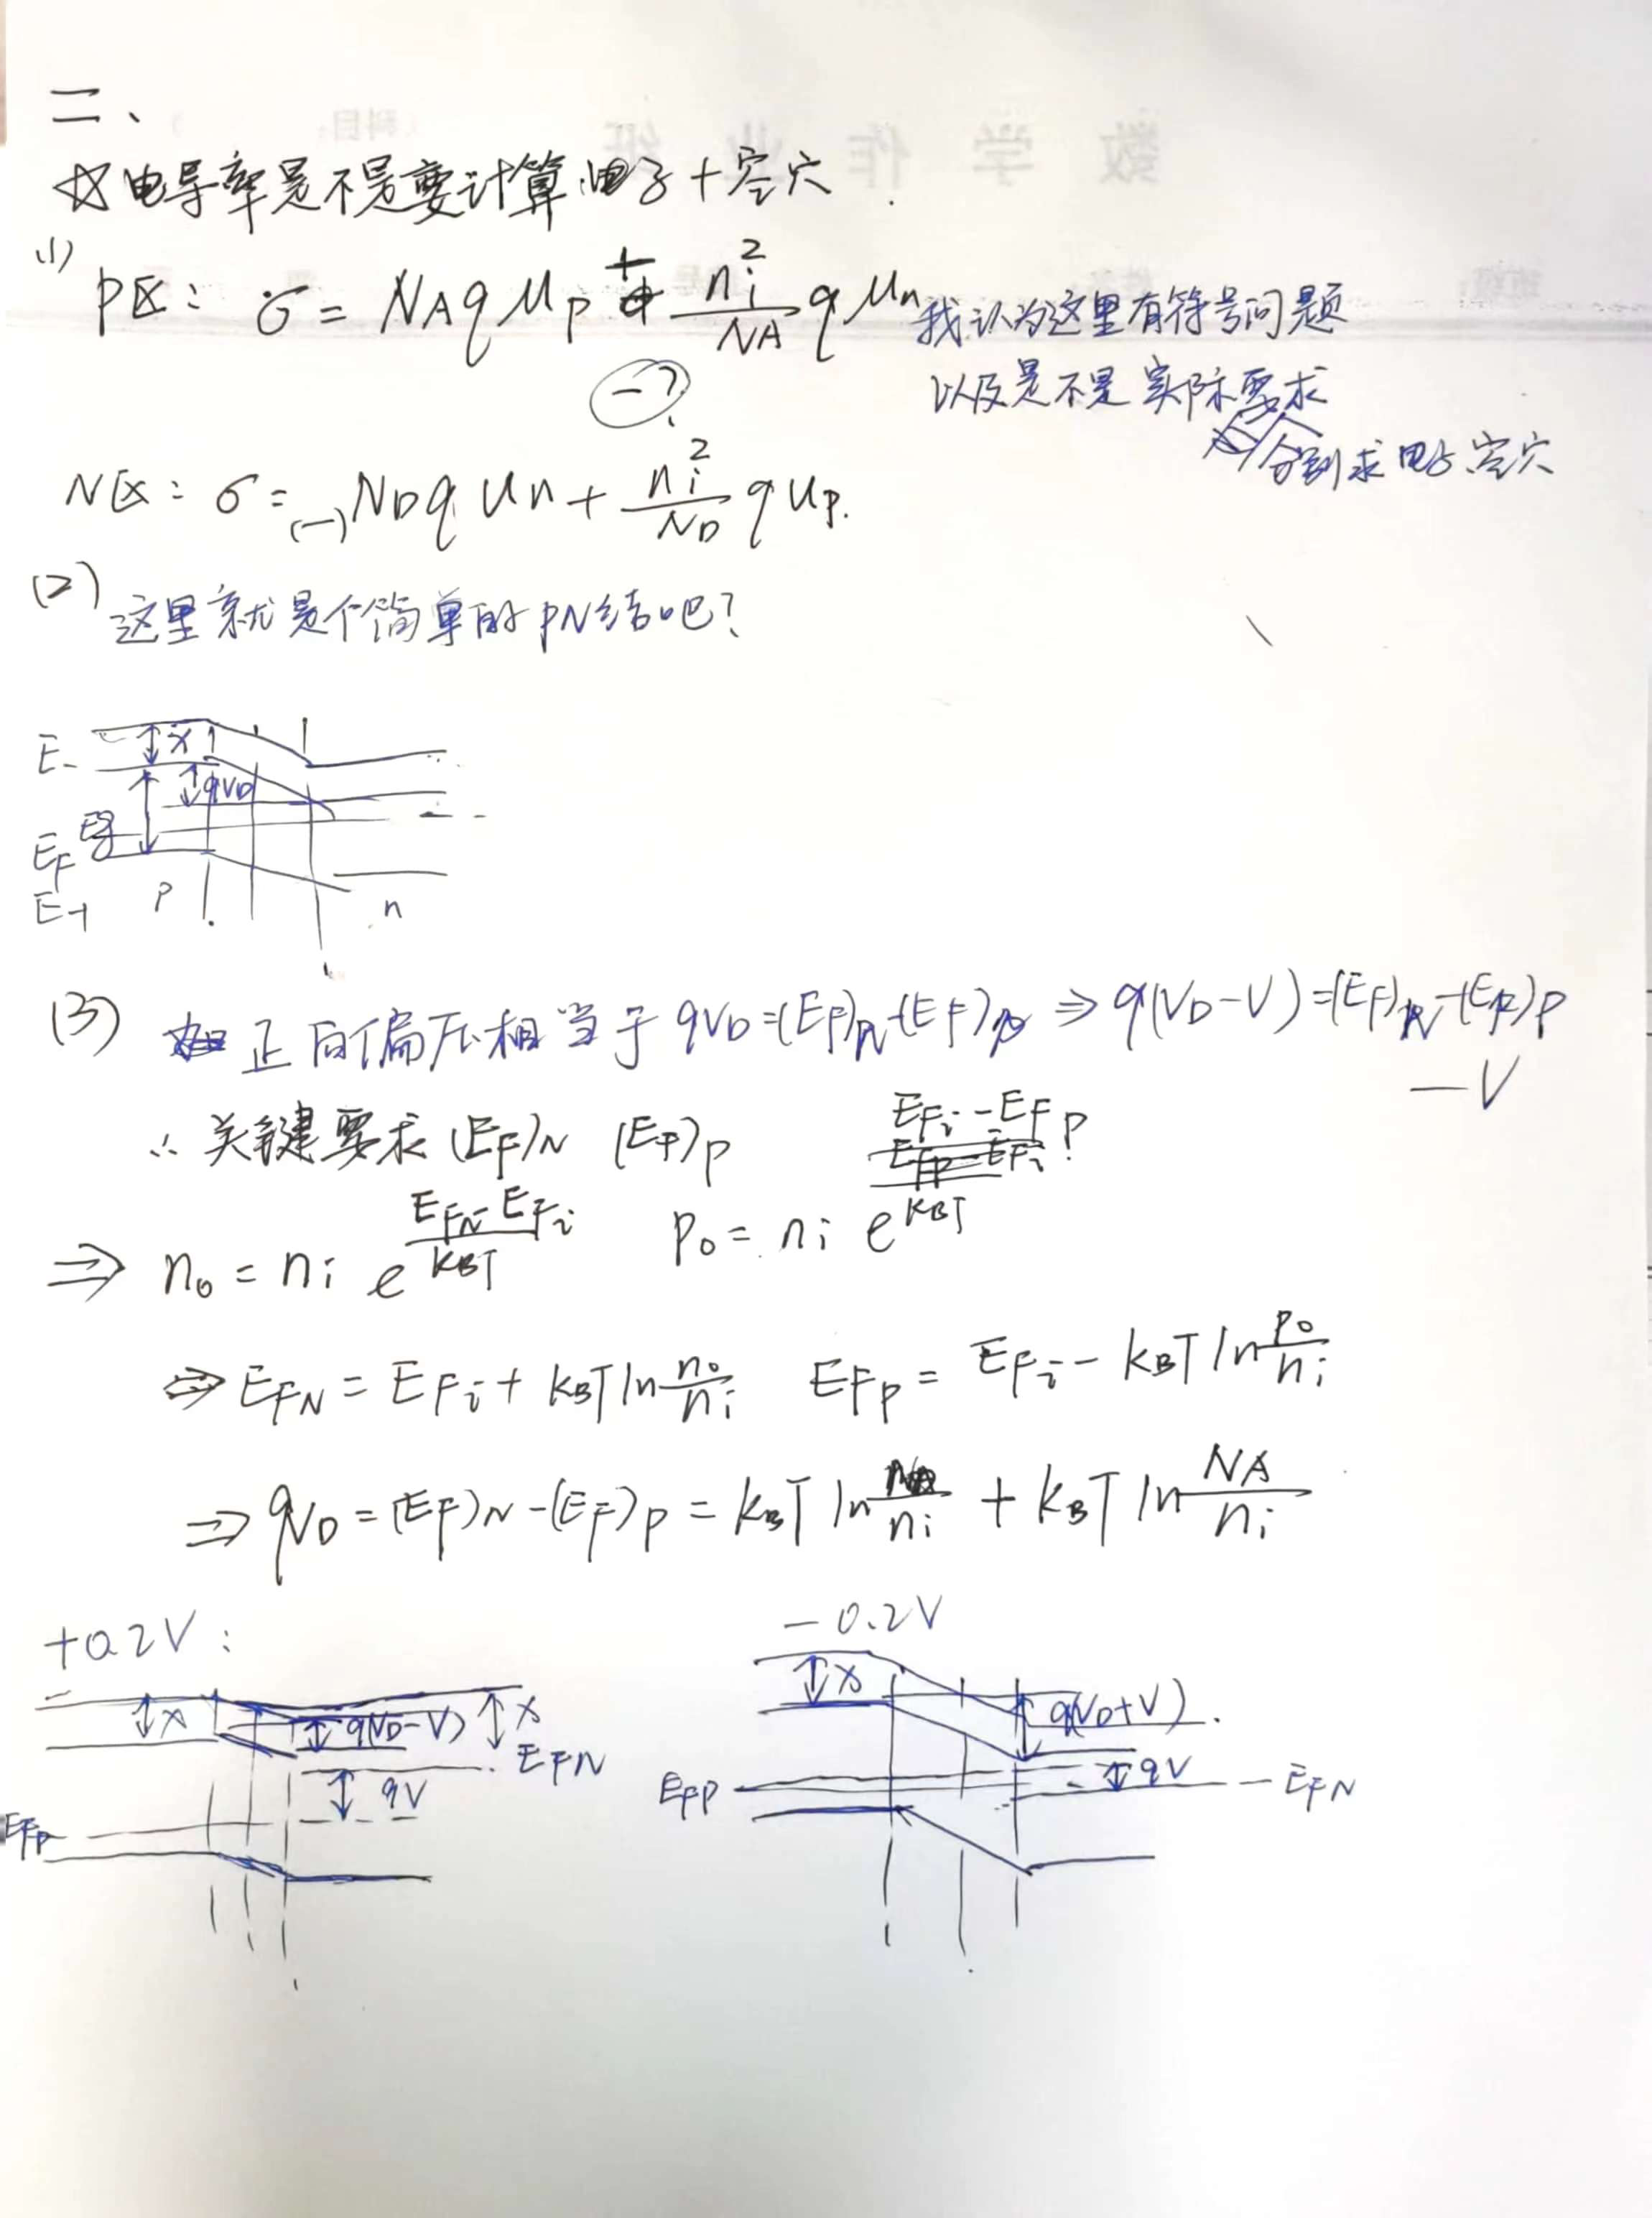 二、
电导率是不是要计算电子+空穴
(1) P区: σ = NA q μp + ni²/NA q μn 我认为这里有符号问题
(-?)
以及是不是实际要求
分别求电子、空穴
N区: σ = (-) ND q μn + ni²/ND q μp.
(2) 这里就是个简单的PN结吧?
E-
χ
qVD
Eg
EF
E+
P
n
(3) 正向偏压相当于 qVD=(EF)N-(EF)P ⇒ q(VD-V)=(EF)N-(EF)P
-V
∴ 关键要求 (EF)N (EF)P
⇒ n0 = ni e^((EFN-EFi)/kBT) p0 = ni e^((EFi-EFP)/kBT)
⇒ EFN = EFi + kBT ln n0/ni EFP = EFi - kBT ln p0/ni
⇒ qVD = (EF)N-(EF)P = kBT ln /ni + kBT ln NA/ni
+0.2V:
χ
q(VD-V)
χ
EFN
qV
EFP
-0.2V
χ
q(VD+V)
qV
EFP
EFN
数学作业纸
科目: